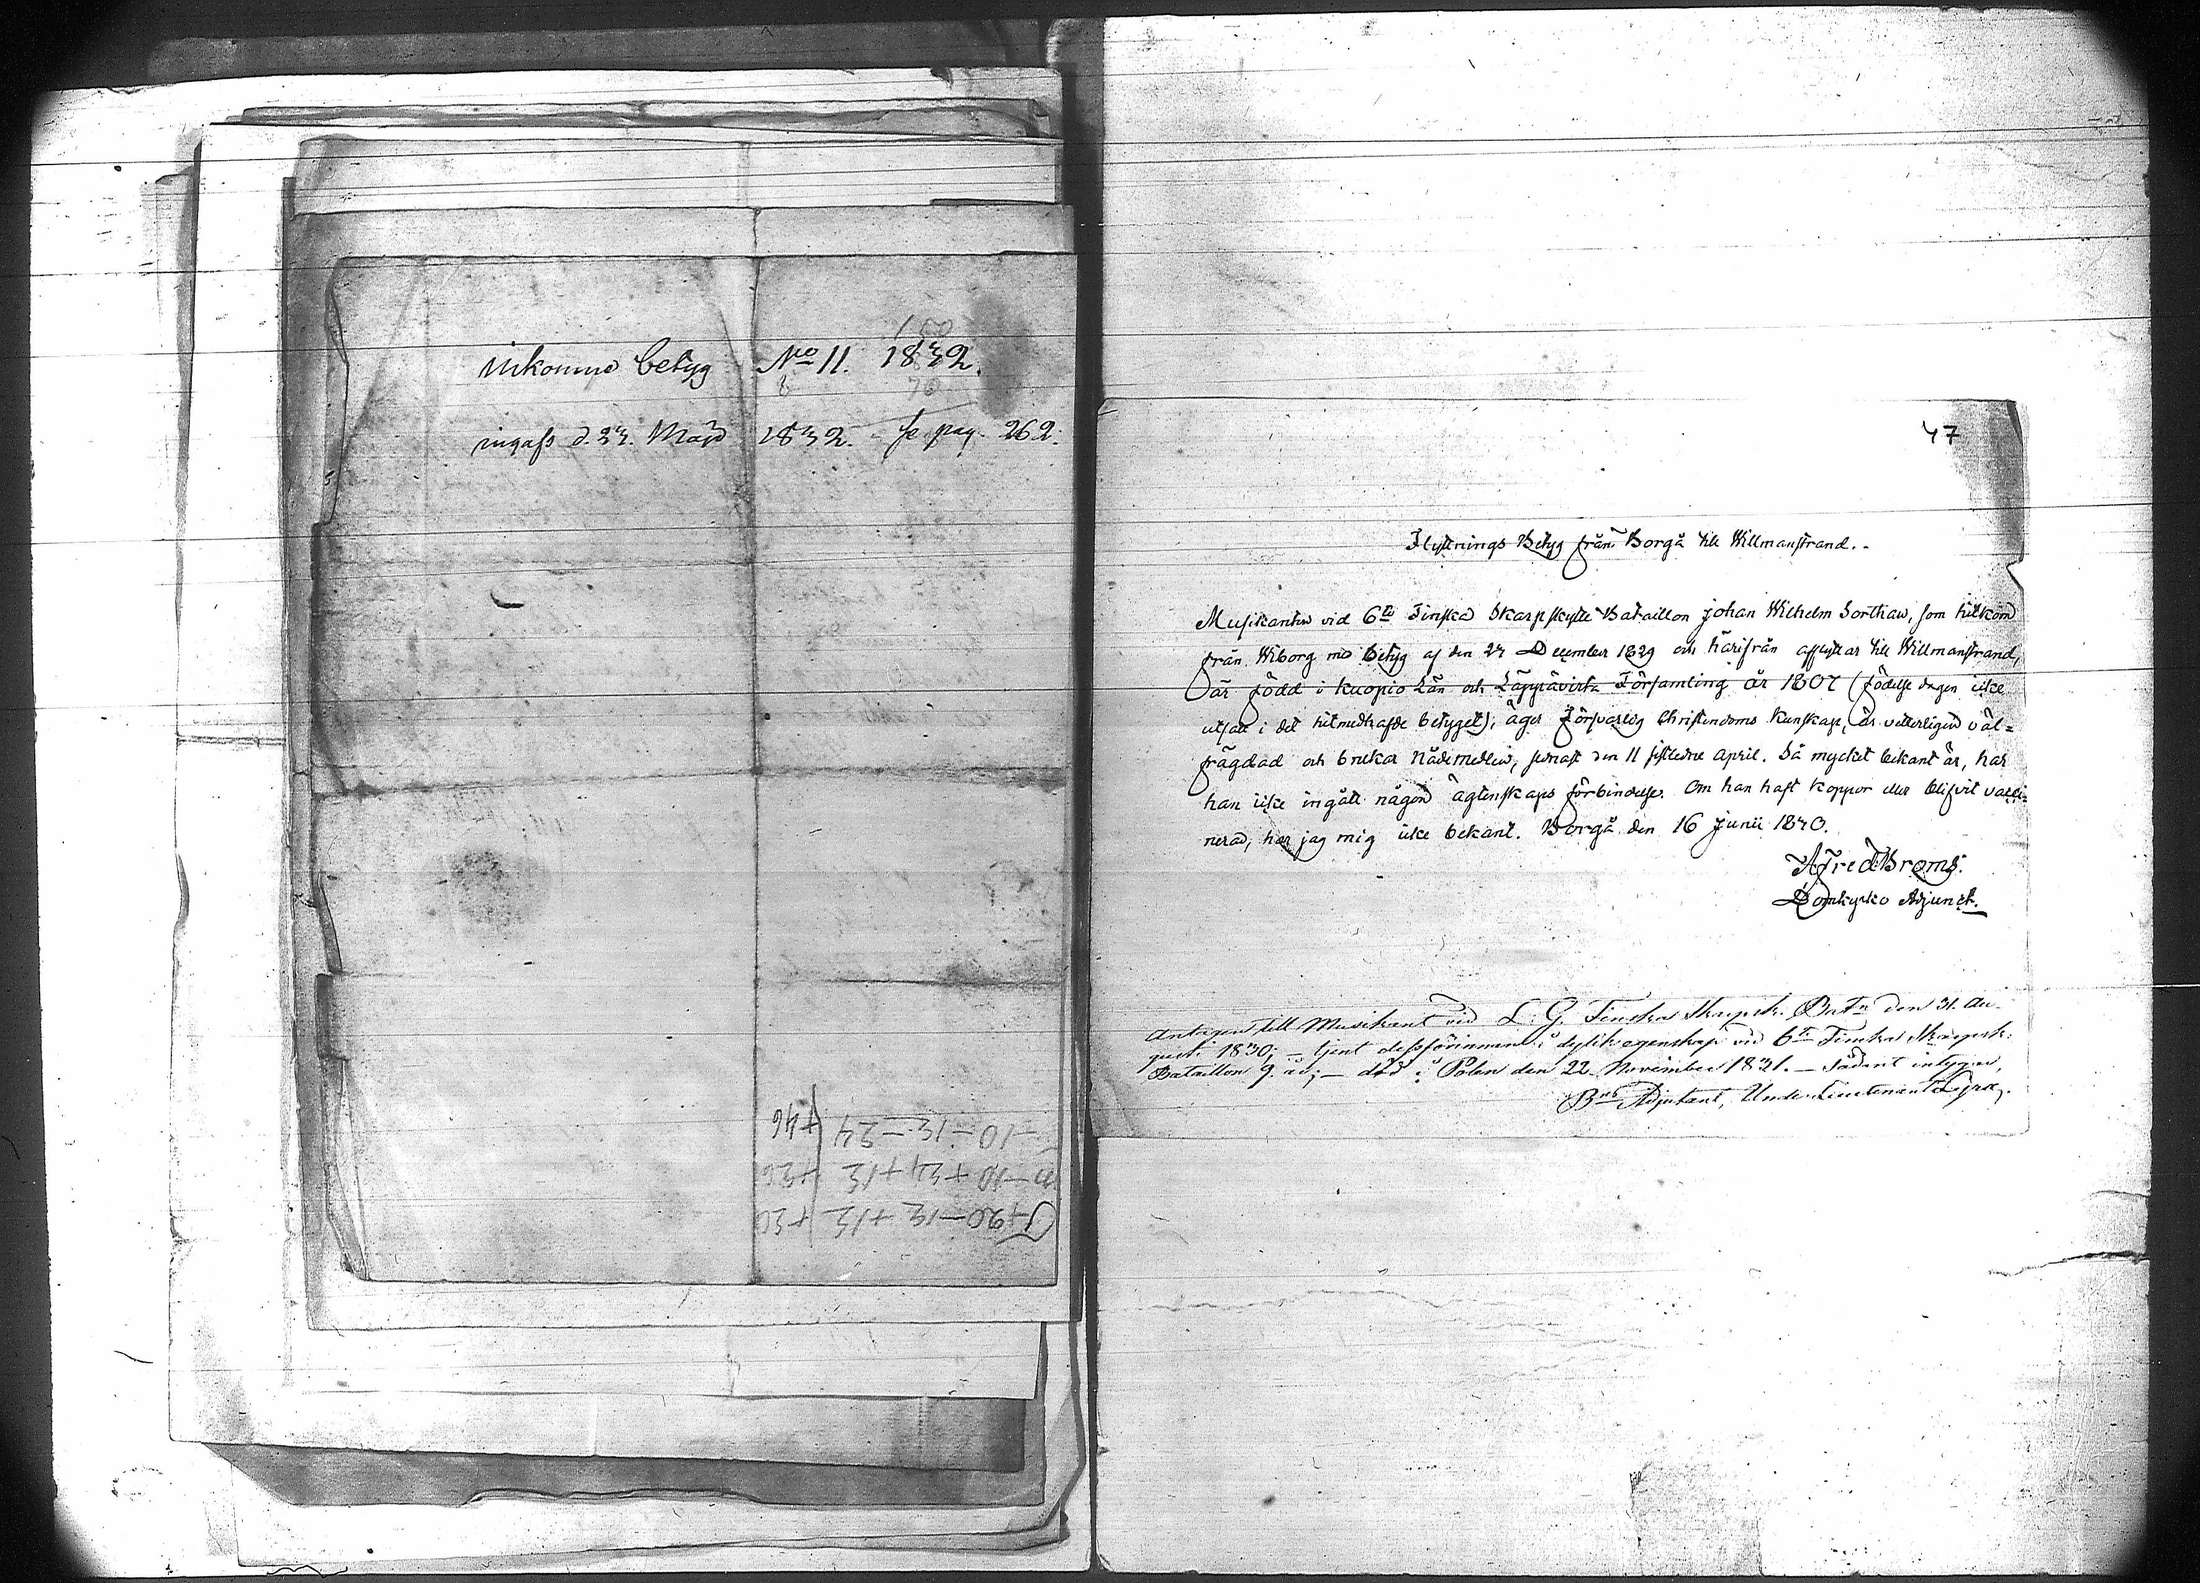 inkomne betyg No 11. 1832.
ingafs d. 23. Mars 1832. - se pag. 262.
+46 -10-12-24
+26 -10+24+12
+20 +20-12+12
47
Flyttnings Betyg från Borgå till Willmanstrand. -
Musikanten vid 6te Finska Skarpskytte Bataillon Johan Wilhelm Sorthan, som hitkom
från Wiborg med betyg af den 24 December 1829 och härifrån afflyttar till Willmanstrand,
är född i Kuopio Län och Läppävirta Församling år 1807 (födelse dagen icke
utsatt i det hitmedhafde betyget); äger försvarlig Christendoms kunskap, är vitterligen väl=
frägdad och brukar Nådemedlen, senast den 11 sistledne April. Så mycket bekant är, har
han icke ingått någon ägtenskaps förbindelse. Om han haft koppor eller blifvit vacci=
nerad, har jag mig icke bekant. Borgå den 16 Junii 1830.
A Fred Broms.
Domkyrko Adjunct.
Antagen till Musikant vid L. G. Finska Skarpsk. Batn den 31. Au-
gusti 1830; - tjent dessförinnan i dylik egenskap vid 6te Finska Skarpsk:
Bataillon 9. år; - död i Polen den 22 November 1831. - Sådant intygar,
Bns Adjutant, Under Lieutenant